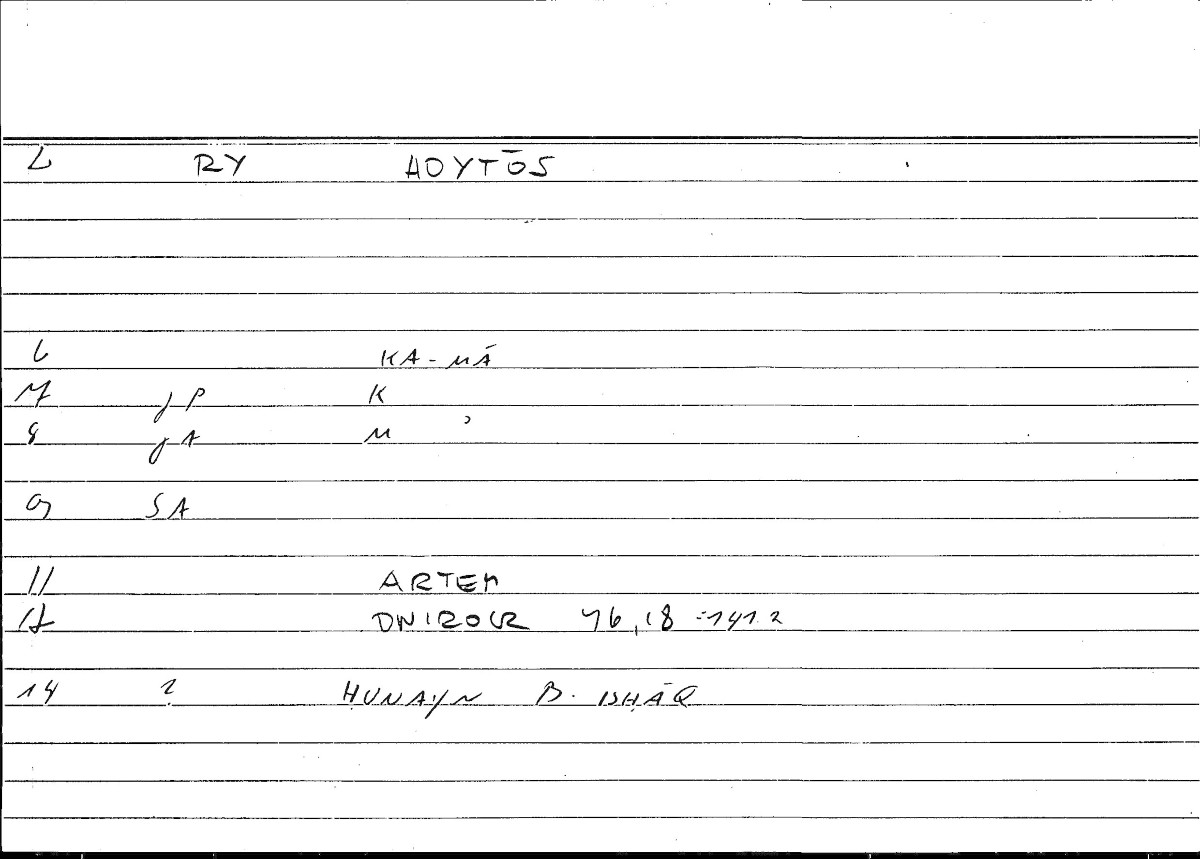 2 RY HOYTŌS
6 KA-MĀ
7 jP K
8 jA M
9 SA
11 ARTEM
12 ONIROCR 76,18 = 141.2
14 ḤUNAYN B. ISḤĀQ